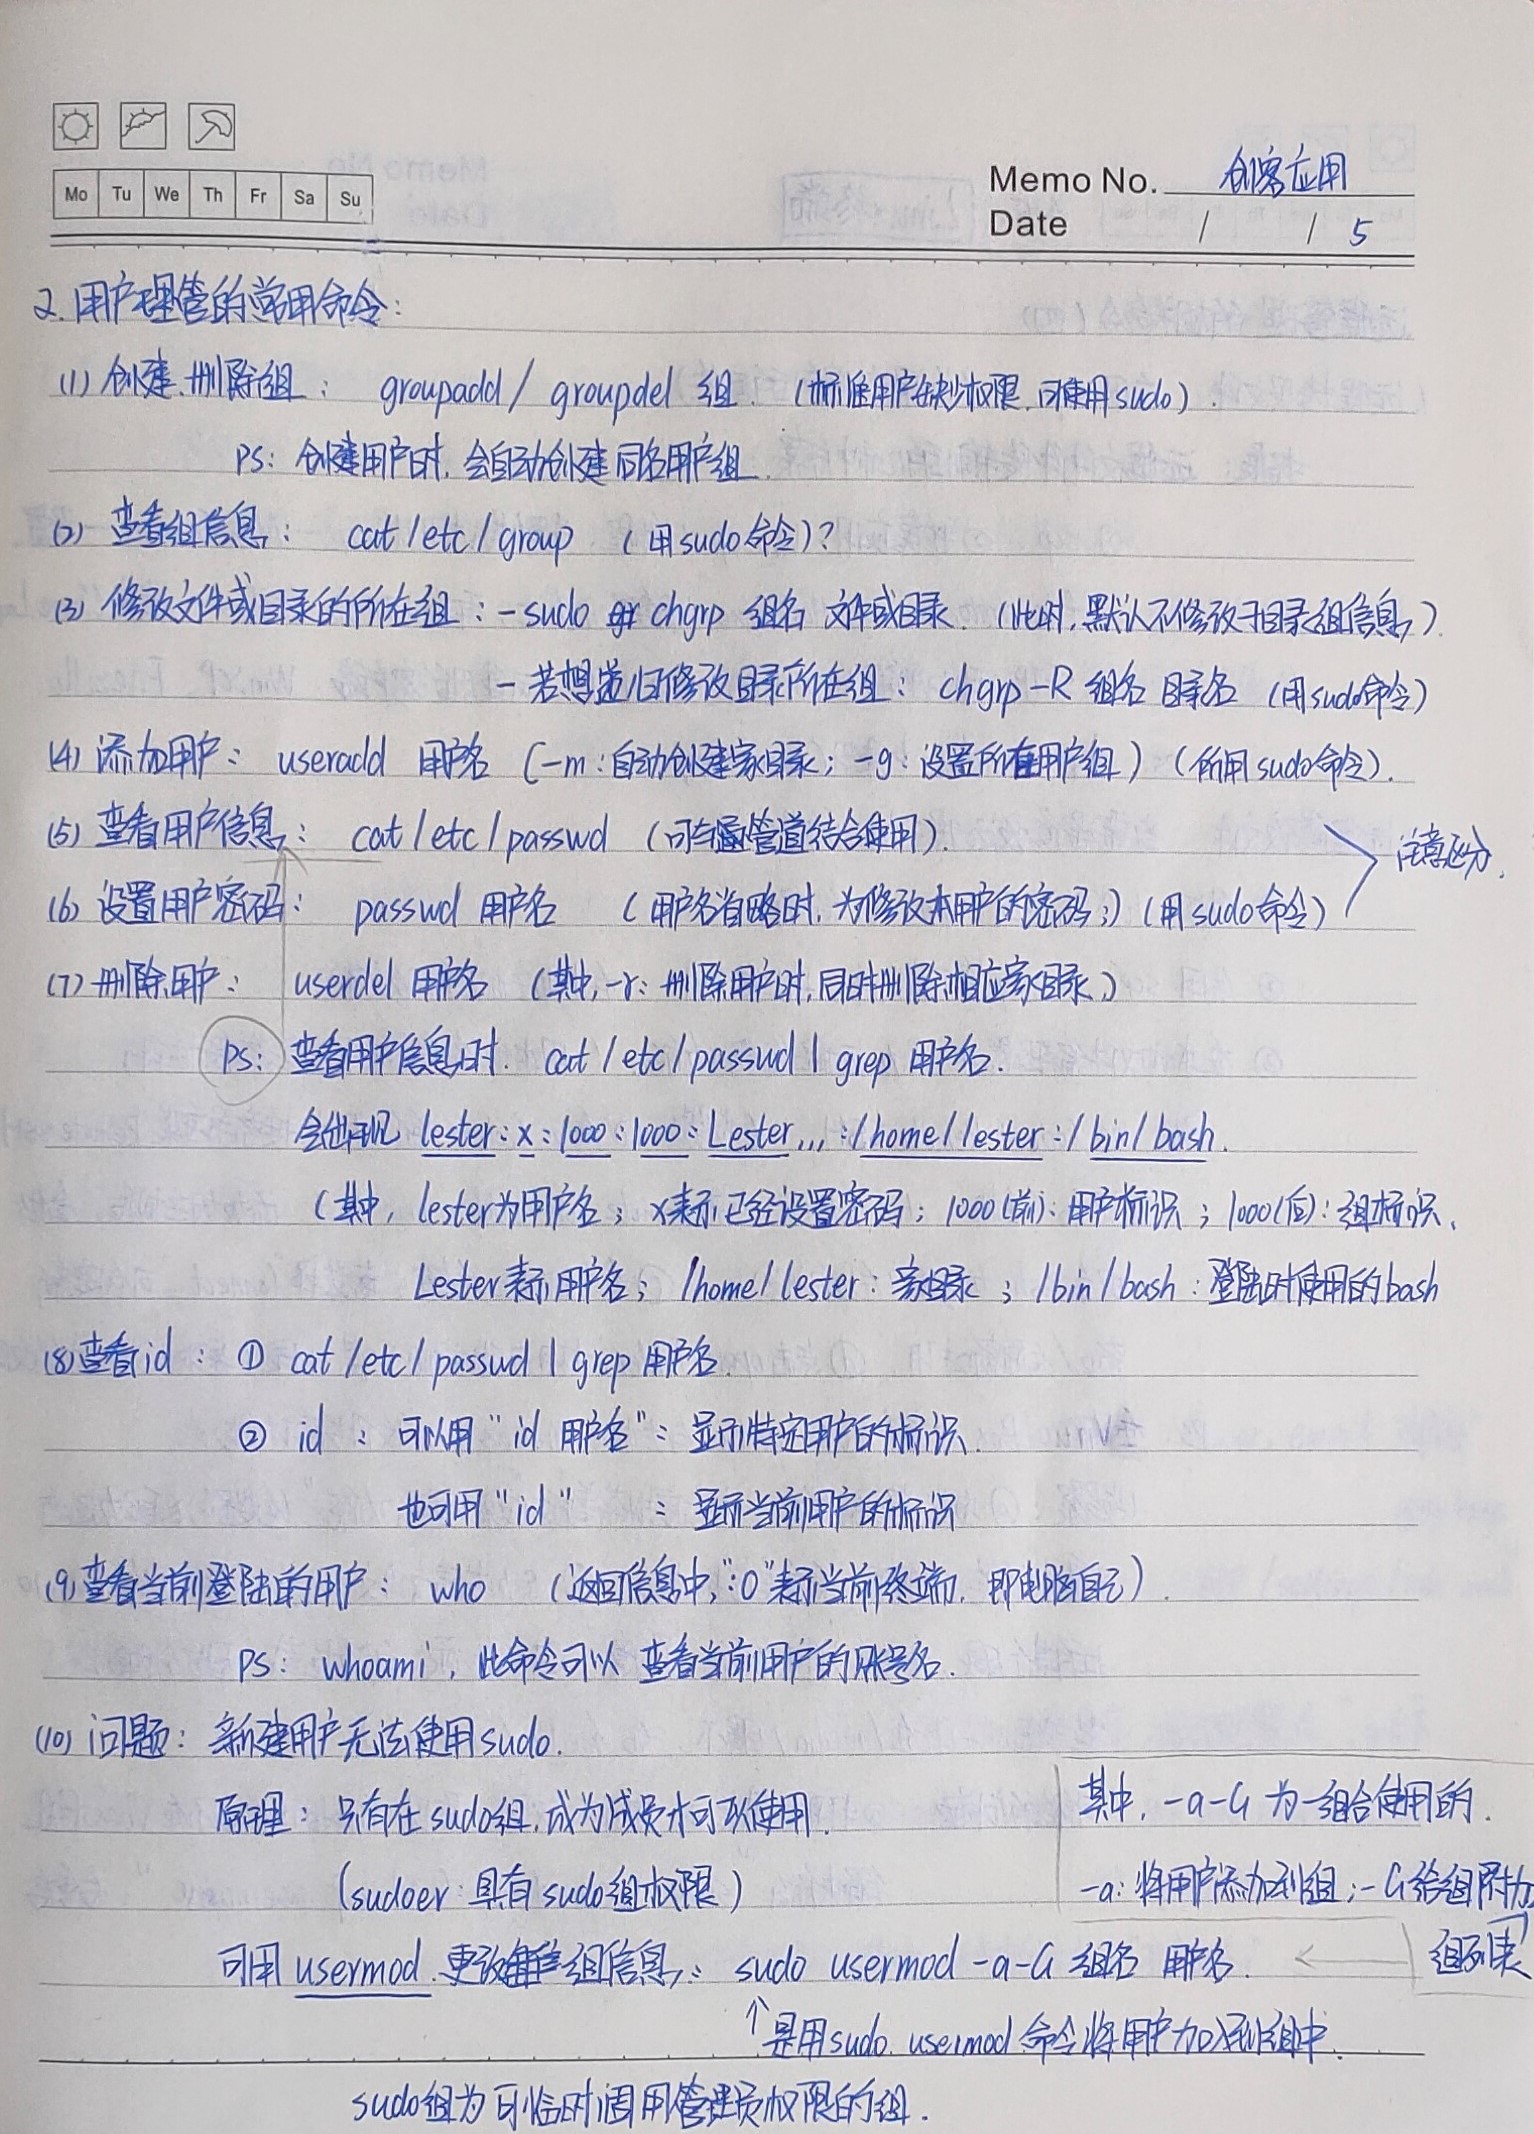 Mo Tu We Th Fr Sa Su
Memo No. 创客应用
Date / / 5
2.用户理管的常用命令:
(1) 创建、删除组: groupadd / groupdel 组. (标准用户缺少权限,可使用sudo).
PS: 创建用户时,会自动创建同名用户组.
(2) 查看组信息: cat /etc/group (用sudo命令)?
(3) 修改文件或目录的所在组: -sudo chgrp 组名 文件或目录. (此时,默认不修改子目录组信息)
-若想递归修改目录所在组: chgrp -R 组名 目录名 (用sudo命令)
(4) 添加用户: useradd 用户名 (-m:自动创建家目录; -g:设置所在用户组) (所用sudo命令).
(5) 查看用户信息: cat /etc/passwd (可与管道结合使用).
注意区分.
(6) 设置用户密码: passwd 用户名 (用户名省略时,为修改本用户的密码;) (用sudo命令)
(7) 删除用户: userdel 用户名 (其中,-r:删除用户时,同时删除相应家目录)
PS: 查看用户信息时. cat /etc/passwd | grep 用户名.
会出现 lester:x:1000:1000:Lester,,,:/home/lester:/bin/bash.
(其中, lester为用户名; x表示已经设置密码; 1000(前):用户标识; 1000(后):组标识.
Lester表示用户名; /home/lester:家目录; /bin/bash:登陆时使用的bash
(8)查看id: ① cat /etc/passwd | grep 用户名.
② id : 可以用"id 用户名": 显示特定用户的标识.
也可用"id" : 显示当前用户的标识
(9)查看当前登陆的用户: who (返回信息中,":0"表示当前终端,即电脑自己).
PS: whoami, 此命令可以 查看当前用户的账号名.
(10) 问题: 新建用户无法使用sudo.
原理: 只有在sudo组,成为成员才可以使用.
其中, -a-G 为一组合使用的.
(sudoer:具有sudo组权限)
-a:将用户添加到组; -G给组附加
组列表
可用 usermod 更改组信息: sudo usermod -a-G 组名 用户名.
↑是用sudo usermod 命令将用户加入到组中.
sudo组为可临时调用管理员权限的组.